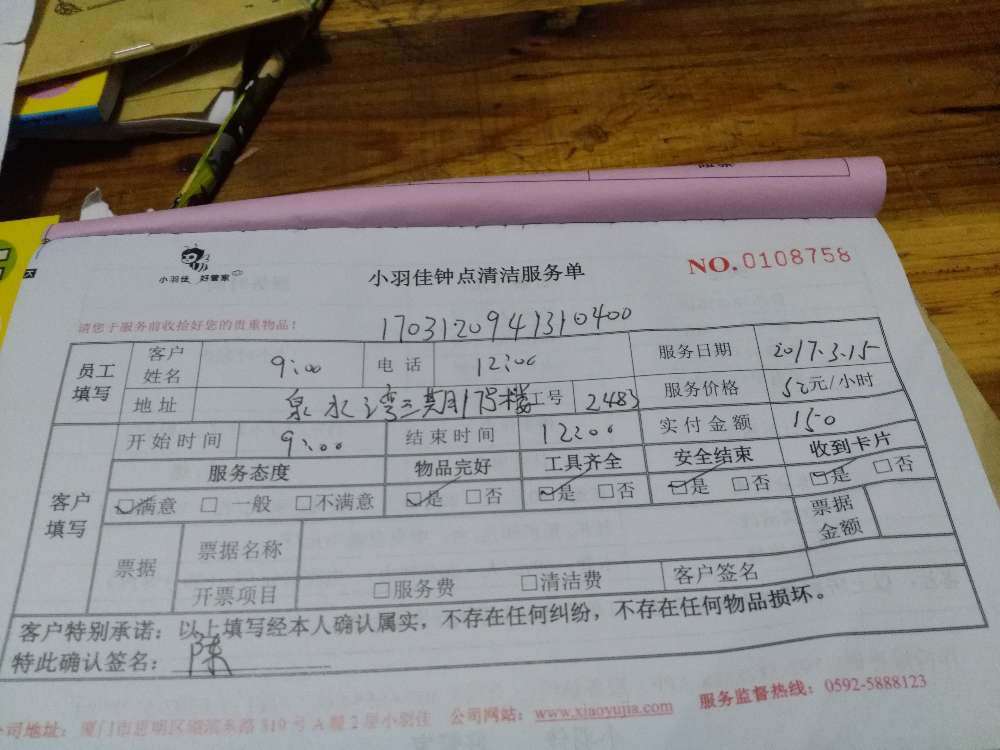 小羽佳 好管家
小羽佳钟点清洁服务单
NO.0108758
请您于服务前收拾好您的贵重物品：
1703120941310400
员工填写 客户姓名 9:00 电话 12:00 服务日期 2017.3.15
地址 泉水湾三期17号楼 工号 2483 服务价格 50元/小时
客户填写 开始时间 9:00 结束时间 12:00 实付金额 150
服务态度 物品完好 工具齐全 安全结束 收到卡片
☑满意 □一般 □不满意 ☑是 □否 ☑是 □否 ☑是 □否 ☑是 □否
票据 票据名称 票据金额
开票项目 □服务费 □清洁费 客户签名
客户特别承诺：以上填写经本人确认属实，不存在任何纠纷，不存在任何物品损坏。
特此确认签名：陈
公司地址：厦门市思明区 东路310号A幢2层小羽佳 公司网站：www.xiaoyujia.com 服务监督热线：0592-5888123